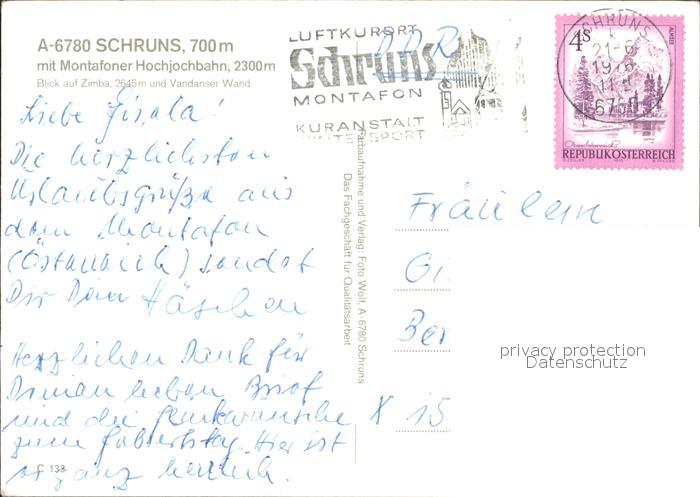 A-6780 SCHRUNS, 700 m
mit Montafoner Hochjochbahn, 2300 m
Blick auf Zimba, 2645 m und Vandanser Wand
LUFTKURORT
Schruns
MONTAFON
KURANSTALT
WINTERSPORT
DDR
SCHRUNS
21-6
1976
6780
4S
REPUBLIK ÖSTERREICH
Liebe Gisela!
Die herzlichsten
Urlaubsgrüße aus
dem Montafon
(Österreich) sendet
Dir Dein Häschen
Herzlichen Dank für
Deinen lieben Brief
und die Glückwünsche
zum Geburtstag. Hier ist
es ganz herrlich.
C 133
Farbaufnahme und Verlag: Foto Wolf, A-6780 Schruns
Das Fachgeschäft für Qualitätsarbeit
Fräulein
Gi
Ber
X 15
privacy protection
Datenschutz